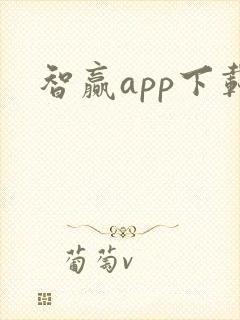 智赢app下载
葡萄v